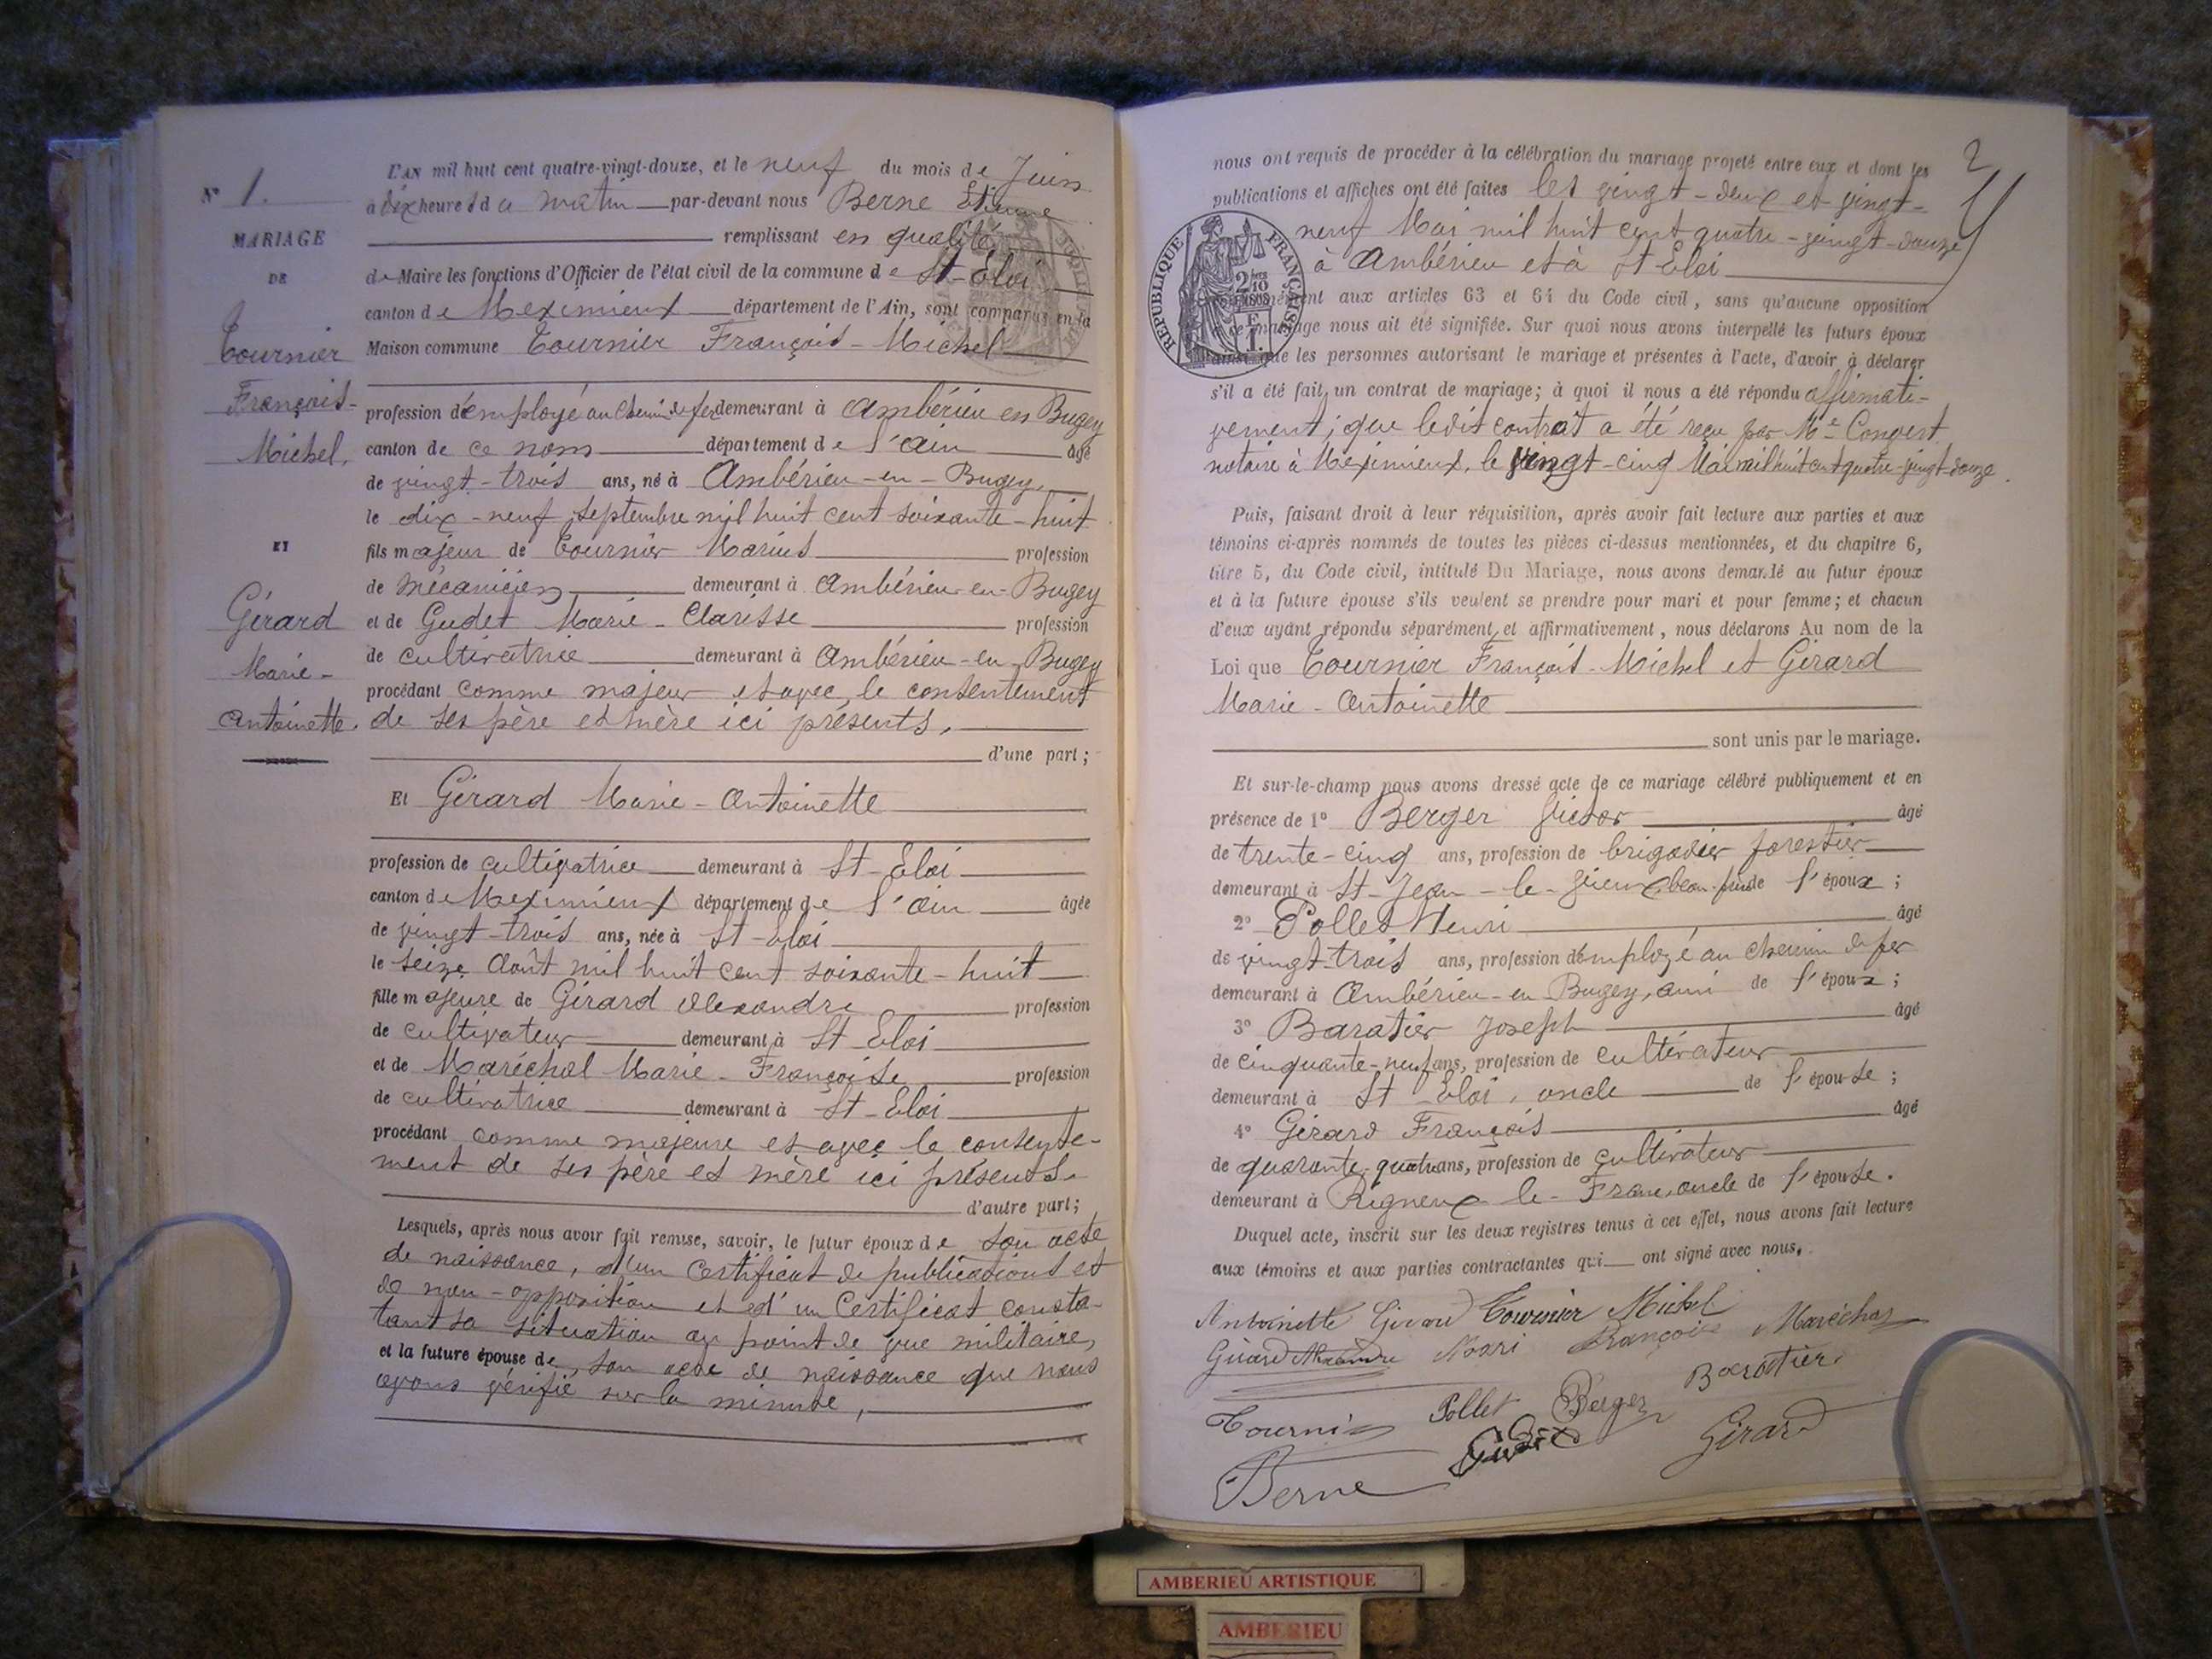 N° 1.
MARIAGE
DE
Tournier
François-
Michel,
ET
Gérard
Marie-
Antoinette.
L'AN mil huit cent quatre-vingt-douze, et le neuf du mois de Juin
à dix heures du matin par-devant nous Berne Etienne
remplissant en qualité
de Maire les fonctions d'Officier de l'état civil de la commune de St-Eloi
canton de Meximieux département de l'Ain, sont comparus en la
Maison commune Tournier François-Michel
profession d'employé au Chemin de fer demeurant à Ambérieu en Bugey
canton de ce nom département de l'Ain âgé
de vingt-trois ans, né à Ambérieu-en-Bugey,
le dix-neuf Septembre mil huit cent soixante-huit
fils majeur de Tournier Marius profession
de mécanicien demeurant à Ambérieu-en-Bugey
et de Gudet Marie-Clarisse profession
de cultivatrice demeurant à Ambérieu-en-Bugey
procédant comme majeur et avec le consentement
de ses père et mère ici présents,
d'une part;
Et Gérard Marie-Antoinette
profession de cultivatrice demeurant à St-Eloi
canton de Meximieux département de l'Ain âgée
de vingt-trois ans, née à St-Eloi
le seize Août mil huit cent soixante-huit
fille majeure de Gérard Alexandre profession
de cultivateur demeurant à St Eloi
et de Maréchal Marie-Françoise profession
de cultivatrice demeurant à St-Eloi
procédant comme majeure et avec le consente-
ment de ses père et mère ici présents.
d'autre part;
Lesquels, après nous avoir fait remise, savoir, le futur époux de son acte
de naissance, d'un Certificat de publications et
de non-opposition et d'un Certificat consta-
tant sa situation au point de vue militaire,
et la future épouse de son acte de naissance que nous
avons vérifié sur la minute,
2
nous ont requis de procéder à la célébration du mariage projeté entre eux et dont les
publications et affiches ont été faites les vingt-deux et vingt-
neuf Mai mil huit cent quatre-vingt-douze
à Ambérieu et à St Eloi
REPUBLIQUE FRANÇAISE
2/10 EN SUS
F. 1.
aux articles 63 et 64 du Code civil, sans qu'aucune opposition
à ce mariage nous ait été signifiée. Sur quoi nous avons interpellé les futurs époux
ainsi que les personnes autorisant le mariage et présentes à l'acte, d'avoir à déclarer
s'il a été fait un contrat de mariage; à quoi il nous a été répondu affirmati-
vement; que ledit contrat a été reçu par Me Convert
notaire à Meximieux, le vingt-cinq Mai mil huit cent quatre-vingt-douze.
Puis, faisant droit à leur réquisition, après avoir fait lecture aux parties et aux
témoins ci-après nommés de toutes les pièces ci-dessus mentionnées, et du chapitre 6,
titre 5, du Code civil, intitulé Du Mariage, nous avons demandé au futur époux
et à la future épouse s'ils veulent se prendre pour mari et pour femme; et chacun
d'eux ayant répondu séparément et affirmativement, nous déclarons Au nom de la
Loi que Tournier François-Michel et Gérard
Marie-Antoinette
sont unis par le mariage.
Et sur-le-champ nous avons dressé acte de ce mariage célébré publiquement et en
présence de 1° Berger Victor âgé
de trente-cinq ans, profession de brigadier forestier
demeurant à St-Jean-le-Vieux, beau-frère de l'époux;
2° Pollet Henri âgé
de vingt-trois ans, profession d'employé au chemin de fer
demeurant à Ambérieu-en-Bugey, ami de l'époux;
3° Baratier Joseph âgé
de cinquante-neuf ans, profession de cultivateur
demeurant à St Eloi, oncle de l'épouse;
4° Gérard François âgé
de quarante-quatre ans, profession de cultivateur
demeurant à Rigneux-le-Franc, oncle de l'épouse.
Duquel acte, inscrit sur les deux registres tenus à cet effet, nous avons fait lecture
aux témoins et aux parties contractantes qui ont signé avec nous.
Antoinette Girard Tournier Michel
Girard Alexandre Mari Françoise Maréchal
Tournier Pollet Berger Baratier
Berne Gudet Girard
AMBERIEU ARTISTIQUE
AMBERIEU